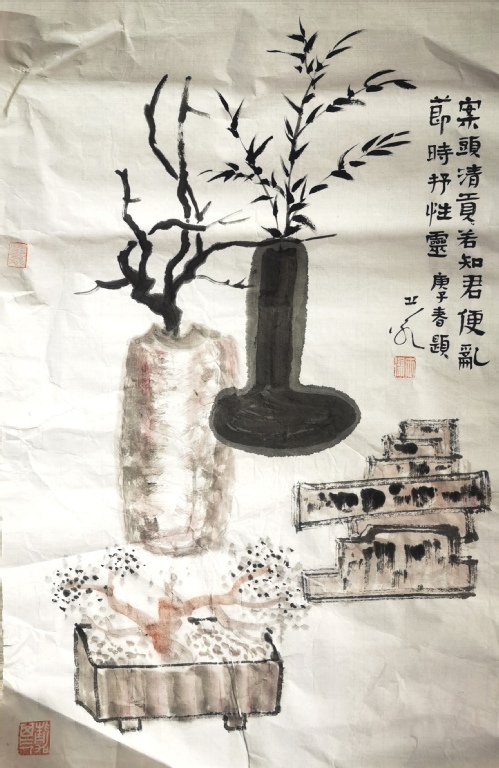 案頭清貢若知君便亂
節時抒性靈
庚子春題